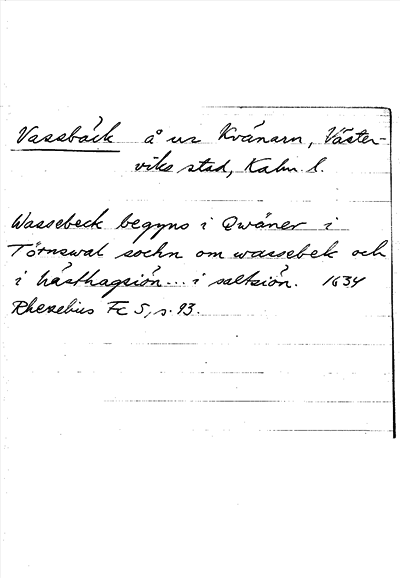 Vassbäck å ur Kvänarn, Väster-
viks stad, Kalm. l.
Wassebeck begyns i Qwäner i
Törnswal sochn om wassebek och
i hästhagsiön... i saltsiön. 1634
Rhezelius Fc 5, s. 93.